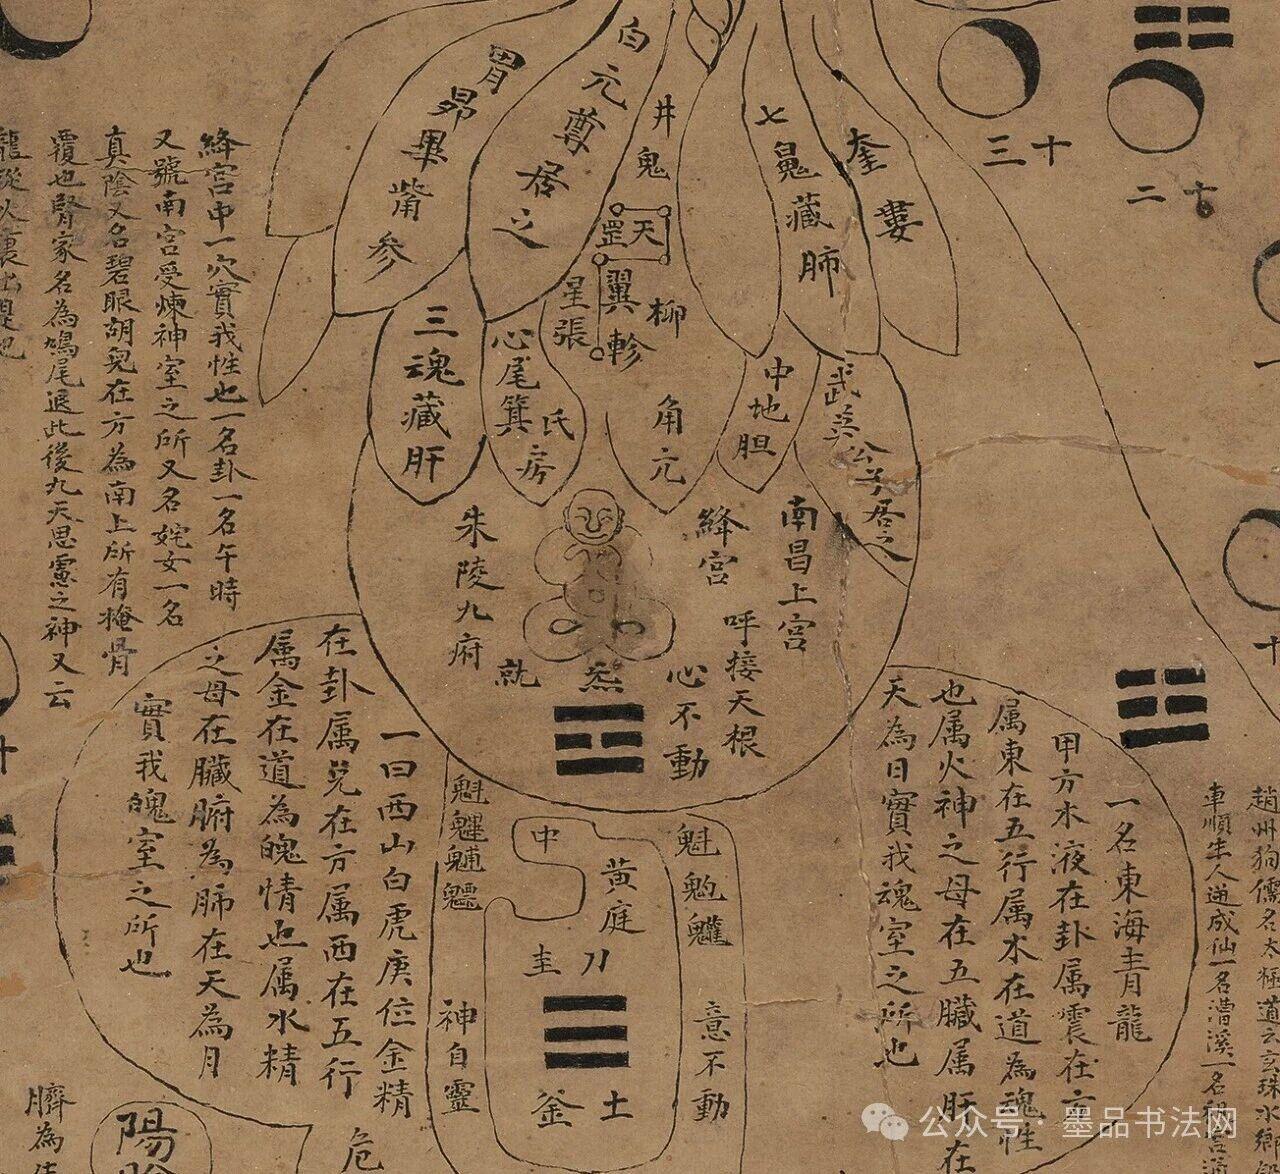 白元尊居之
胃昴畢觜參
井鬼
七魄藏肺
奎婁
天罡
翼軫
星張
柳
三魂藏肝
心尾箕
氐房
角亢
中地胆
武英公子居之
十三
十二
朱陵九府
絳宮
南昌上宮
呼接天根
心不動
就
炁
絳宮中一穴實我性也一名卦一名午時
又號南宮受煉神室之所又名姹女一名
真陰又名碧眼胡兒在方為南上所有掩骨
覆也腎家名為鳩尾退此後九天思慮之神又云
龍從火裏出是也
一曰西山白虎庚位金精
在卦属兌在方属西在五行
属金在道為魄情也属水精
之母在臟腑為肺在天為月
實我魄室之所也
一名東海青龍
甲方木液在卦属震在方
属東在五行属木在道為魂性
也属火神之母在五臟属肝在
天為日實我魂室之所也
中
黄庭
圭刀
土釜
神自靈
意不動
趙州狗儒名太極道云玄珠水鄉
車順生人逆成仙一名漕溪一名
臍為
陽
危
十
公众号·墨品书法网